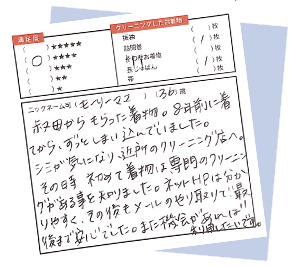 満足度
( )★★★★★
(○)★★★★
( )★★★
( )★★
( )★
クリーニングしたお着物
振袖 ( )枚
訪問着 ( / )枚
( )枚
長じゅばん ( / )枚
帯 ( )枚
ニックネーム可 (もーりーママ) (36)歳
叔母からもらった着物。8年前に着
てから、ずっとしまい込んでいました。
シミが気になり近所のクリーニング店へ。
その時 初めて着物は専門のクリーニン
グがある事を知りました。ネットHPは分か
りやすく、その後もメールのやり取りで最
後まで安心でした。また機会があれば
利用したいです。